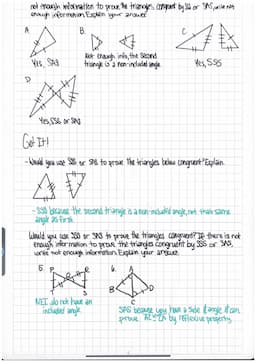 not enough information to prove the triangles congruent by SSS or SAS, write not
enough information. Explain your answer
A
B
C
Yes, SAS
Not enough info, the second
triangle is a non-included angle
Yes, SSS
D
Yes, SSS or SAS
Got It!
- Would you use SSS or SAS to prove the triangles below congruent? Explain.
- SSS because the second triangle is a non-included angle, not than same
angle as first.
Would you use SSS or SAS to prove the triangles congruent? If there is not
enough information to prove the triangles congruent by SSS or SAS,
write not enough information. Explain your answer.
5.
P
R
T
S
6.
A
B
D
C
NEI do not have an
included angle
SAS because you have a side & angle & can
prove by reflexive property